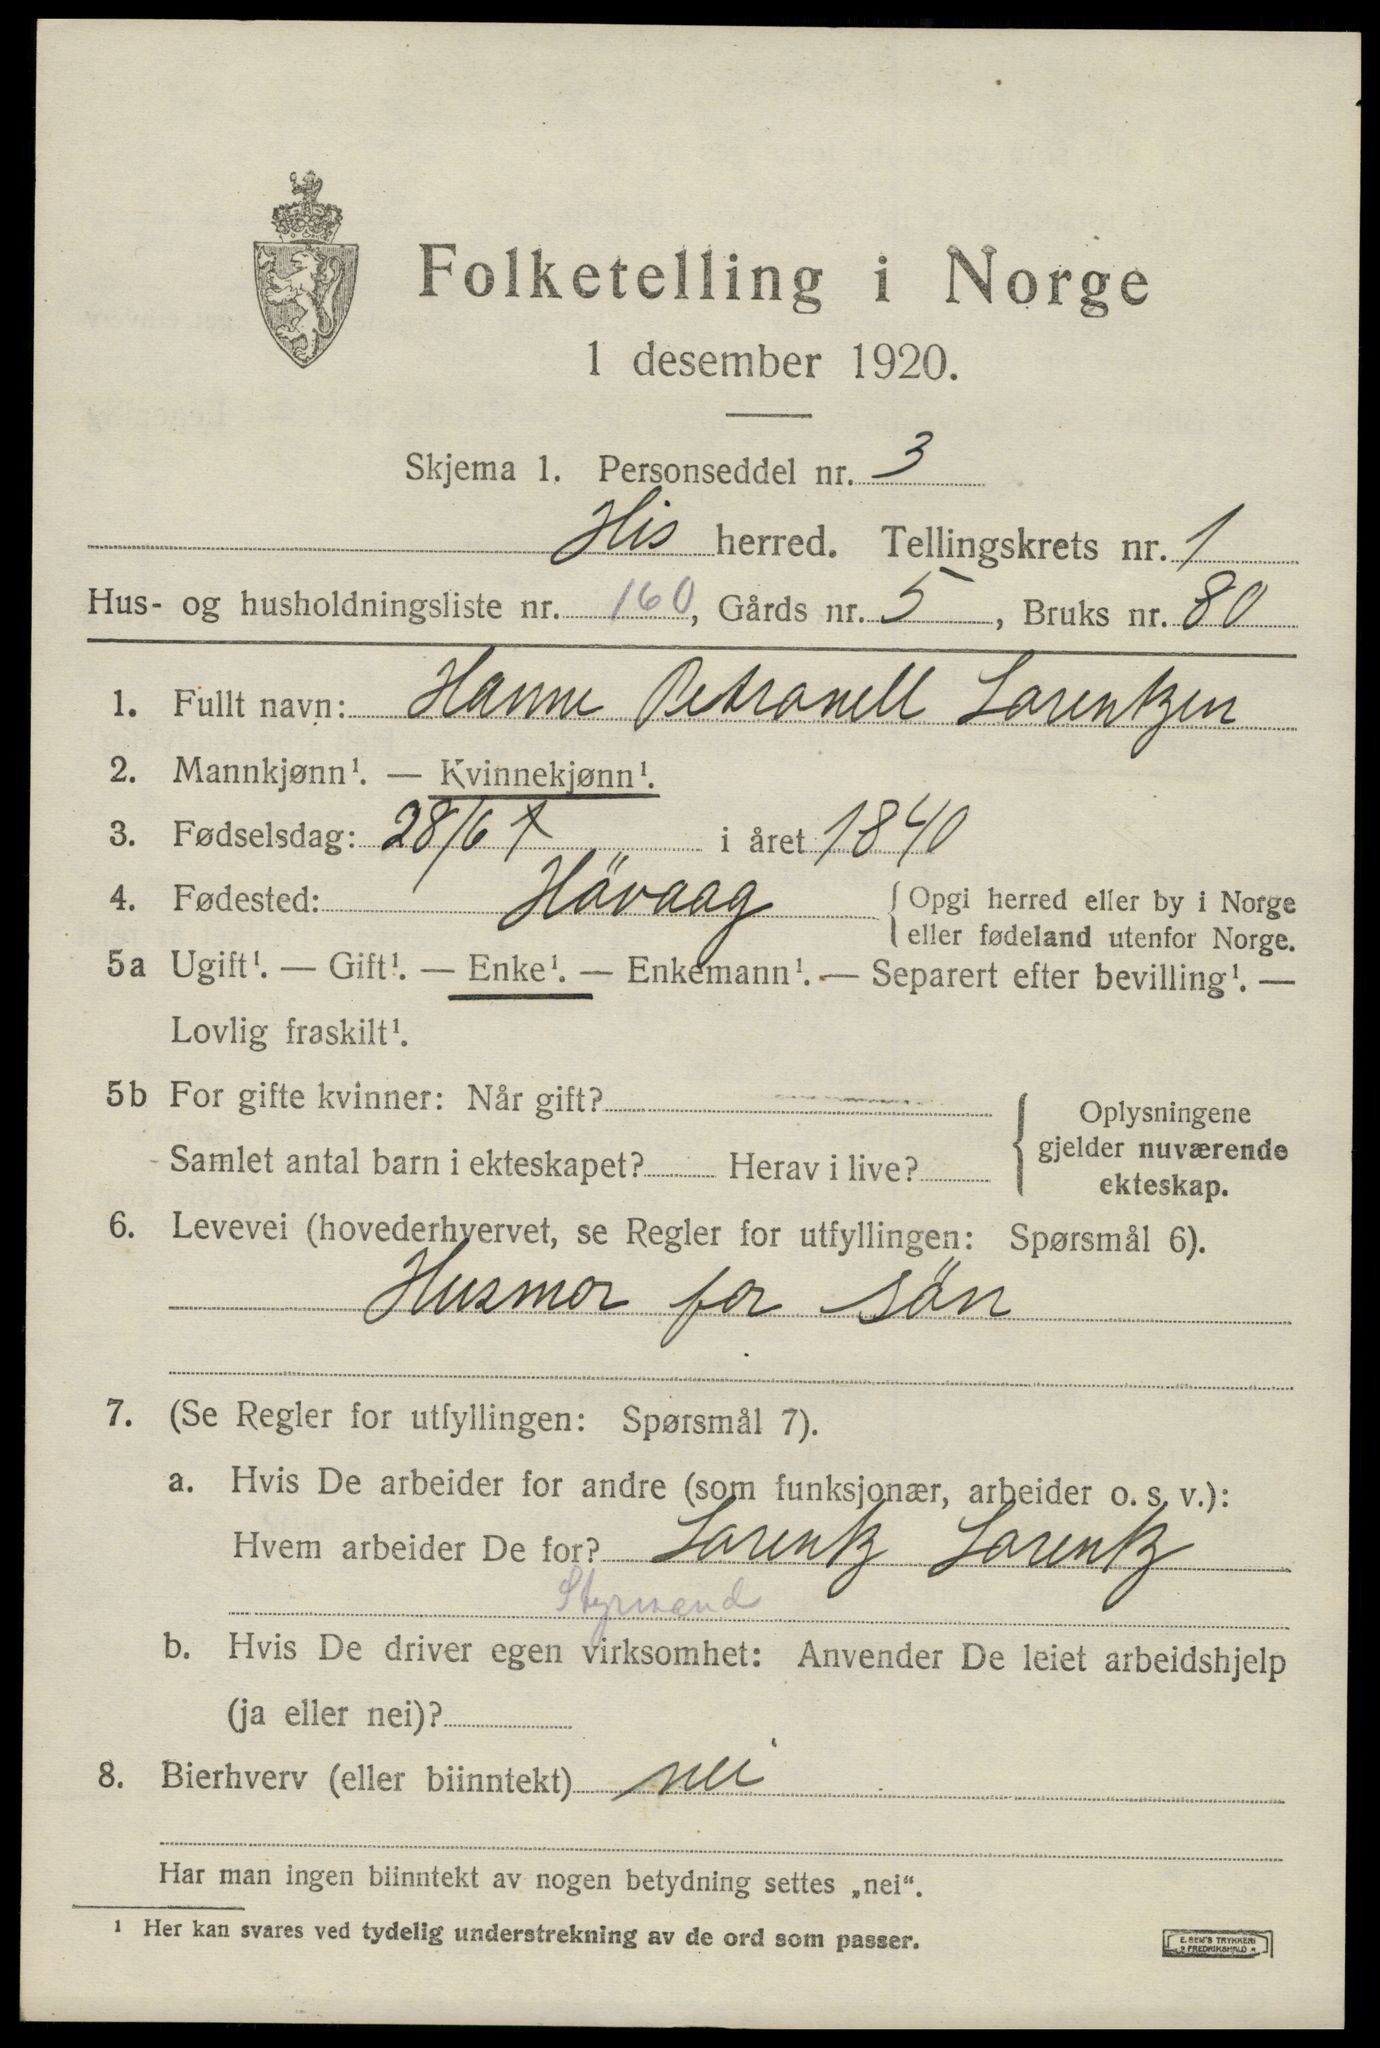 Folketelling i Norge
1 desember 1920.
Skjema 1. Personseddel nr. 3
His herred. Tellingskrets nr. 1
Hus- og husholdningsliste nr. 160, Gårds nr. 5, Bruks nr. 80
1. Fullt navn: Hanne Petronell Lorentzen
2. Mannkjønn¹. — Kvinnekjønn¹.
3. Fødselsdag: 28/6 i året 1840
4. Fødested: Hövaag {Opgi herred eller by i Norge
eller fødeland utenfor Norge.
5a Ugift¹. — Gift¹. — Enke¹. — Enkemann¹. — Separert efter bevilling¹. —
Lovlig fraskilt¹.
5b For gifte kvinner: Når gift? { Oplysningene
gjelder nuværende
Samlet antal barn i ekteskapet? Herav i live? ekteskap.
6. Levevei (hovederhvervet, se Regler for utfyllingen: Spørsmål 6).
Husmor for sön
7. (Se Regler for utfyllingen: Spørsmål 7).
a. Hvis De arbeider for andre (som funksjonær, arbeider o. s. v.):
Hvem arbeider De for? Lorentz Lorentz
Styrmand
b. Hvis De driver egen virksomhet: Anvender De leiet arbeidshjelp
(ja eller nei)?
8. Bierhverv (eller biinntekt) nei
Har man ingen biinntekt av nogen betydning settes „nei“.
¹ Her kan svares ved tydelig understrekning av de ord som passer.
E. SEM'S TRYKKERI
FREDRIKSHALD